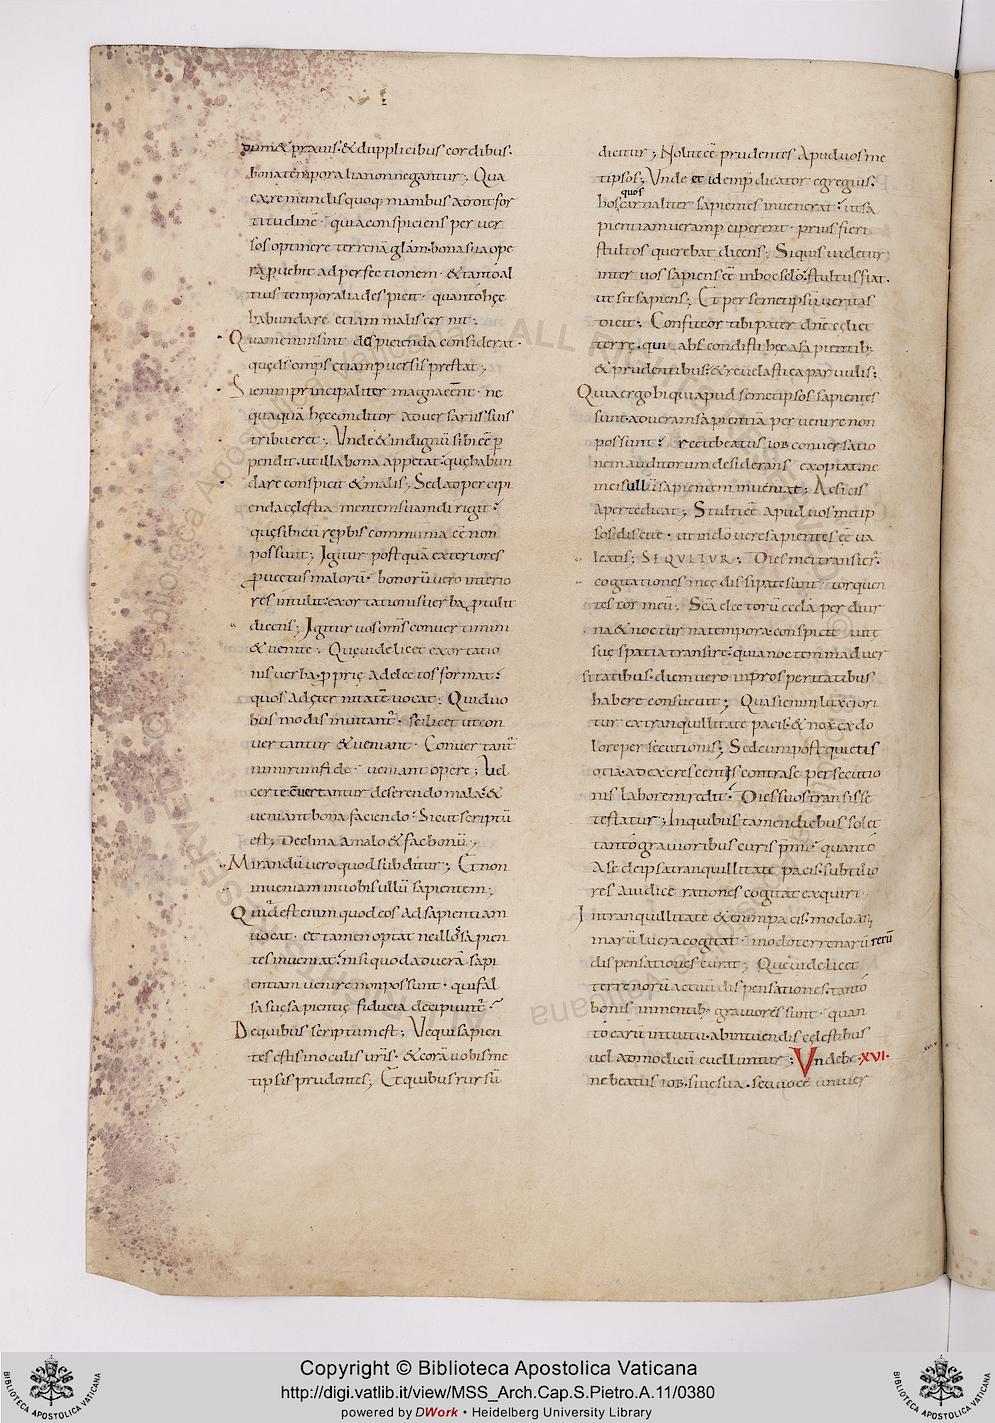 dum & prauis · & dupplicibus cordibus ·
bona temporalia non negantur ; Qua
exire mundis quoq; manibus adoit for
titudinē · quia conspiciens per uer
sos optinere terrenā glām · bona sua ope
ra ꝓuehit ad perfectionem · & tanto al
tius temporalia despicit · quanto hęc
habundare etiam malis cernit ;
Quam enim sint despicienda considerat ·
quę ds omps etiam peruersis prestat ;
Si enim principaliter magna eēnt · ne
quaquā hęc conditor aduersariis suis
tribueret ; Unde & indignū sibi eē per
pendit · ut illa bona appetat · quę habun
dare conspicit & malis ; Sed ad percipi
enda cęlestia mentem suam dirigit ·
quę sibi cū reprobis communia eē non
possunt ; Igitur postquā exteriores
ꝓuectus malorū · bonorū uero interio
res intulit · exortationis uerba ꝓtulit
dicens ; Igitur uos oms conuertimini
& uenite ; Quę uidelicet exortatio
nis uerba · ꝓprię ad electos format ·
quos ad ęternitatē uocat ; Qui duo
bus modis inuitantr · scilicet ut con
uertantur & ueniant · Conuertant
nimirum fide · ueniant opere ; Vel
certe cuertantur deserendo mala · &
ueniant bona faciendo · Sicut scriptū
est ; Declina a malo & fac bonū ;
Mirandū uero quod subditur ; Et non
inueniam in uobis ullū sapientem ;
Quid est enim quod eos ad sapientiam
uocat · et tamen optat ne illos sapien
tes inueniat · nisi quod ad uerā sapi
entiam uenire non possunt · qui fal
sa suę sapientię fiducia decipiuntr ·
De quibus scriptum est ; Ve qui sapien
tes estis in oculis uris · & corā uobis me
tipsis prudentes ; Et quibus rursū
dicitur ; Nolite eē prudentes apud uosme
tipsos ; Unde et idem predicator egregius ·
quos
hos carnaliter sapientes inuenerat · ut sa
pientiam ueram perciperent · prius fieri
stultos querebat dicens ; Siquis uidetur
inter uos sapiens eē in hoc sęlo · stultus fiat ·
ut sit sapiens ; Et per semetipsū ueritas
dicit ; Confiteor tibi pater dne cęli et
terrę · qui abscondisti hęc a sapientib;
& prudentibus · & reuelasti ea paruulis ;
Quia ergo hi qui apud semetipsos sapientes
sunt · ad ueram sapientiā peruenire non
possunt · recte beatus iob conuersatio
nem auditorum desiderans exoptat · ne
in eis ullū sapientem inueniat ; Ac si eis
aperte dicat ; Stulti eē apud uosmetip
sos discite · ut in dō uere sapientes eē ua
leatis ; SEQUITUR ; Dies mei transierr ·
cogitationes meę dissipate sunt · torquen
tes cor meū ; Scā electorū eccla per diur
na & nocturna tempora conspicit uitę
suę spatia transire · quia noctem in aduer
sitatibus · diem uero in prosperitatibus
habere consueuit ; Quasi enim lux ei ori
tur ex tranquillitate pacis · & nox ex do
lore persecutionis ; Sed cum post quietis
otia · ad excrescentis contra se persecutio
nis laborem redit · Dies suos transisse
testatur ; In quibus tamen diebus solet
tanto grauioribus curis premi · quanto
a se de ipsa tranquillitate pacis · subtilio
res a iudice rationes cogitat exquiri ·
In tranquillitate etenim pacis · modo ani
marū lucra cogitat · modo terrenarū rerū
dispensationes curat ; Que uidelicet
terrenorū actuū dispensationes · tanto
bonis mentib; grauiores sunt · quan
to earū intuitu · ab intuendis cęlestibus
uel ad modicū euelluntur ; Unde & · XVI ·
ne beatus iob · siue sua · seu uoce uniuer
Copyright © Biblioteca Apostolica Vaticana
http://digi.vatlib.it/view/MSS_Arch.Cap.S.Pietro.A.11/0380
powered by DWork • Heidelberg University Library
BIBLIOTECA APOSTOLICA VATICANA
BIBLIOTECA APOSTOLICA VATICANA